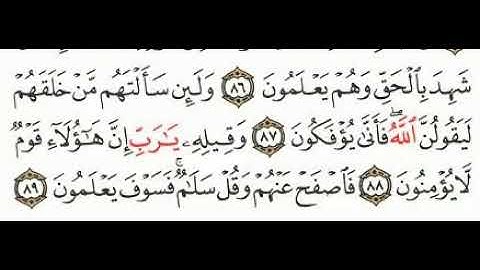 شَهِدَ بِٱلۡحَقِّ وَهُمۡ يَعۡلَمُونَ ٨٦ وَلَئِن سَأَلۡتَهُم مَّنۡ خَلَقَهُمۡ
لَيَقُولُنَّ ٱللَّهُۖ فَأَنَّىٰ يُؤۡفَكُونَ ٨٧ وَقِيلِهِۦ يَٰرَبِّ إِنَّ هَٰٓؤُلَآءِ قَوۡمٞ
لَّا يُؤۡمِنُونَ ٨٨ فَٱصۡفَحۡ عَنۡهُمۡ وَقُلۡ سَلَٰمٞۚ فَسَوۡفَ يَعۡلَمُونَ ٨٩